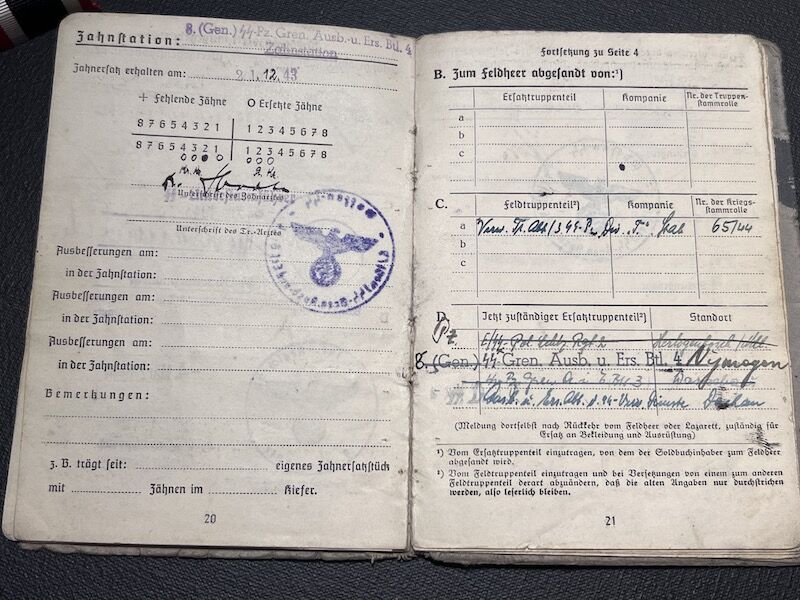 8. (Gen.) SS-Pz. Gren. Ausb.- u. Ers. Btl. 4
Zahnstation: Zahnstation
Zahnersatz erhalten am: 21. 12. 43
+ Fehlende Zähne O Ersetzte Zähne
8 7 6 5 4 3 2 1 1 2 3 4 5 6 7 8
8 7 6 5 4 3 2 1 1 2 3 4 5 6 7 8
Unterschrift des Zahnarztes
Unterschrift des Tr.-Arztes
Ausbesserungen am:
in der Zahnstation:
Ausbesserungen am:
in der Zahnstation:
Ausbesserungen am:
in der Zahnstation:
Bemerkungen:
z. B. trägt seit: eigenes Zahnersatzstück
mit Zähnen im Kiefer.
20
Fortsetzung zu Seite 4
B. Zum Feldheer abgesandt von:¹)
Ersatztruppenteil Kompanie Nr. der Truppen-
stammrolle
a
b
c
C. Feldtruppenteil²) Kompanie Nr. der Kriegs-
stammrolle
a 65/44
b
c
D. Jetzt zuständiger Ersatztruppenteil²) Standort
Pz
8. (Gen.) SS Gren. Ausb. u. Ers. Btl. 4 Nymegen
Dachau
(Meldung dortselbst nach Rückkehr vom Feldheer oder Lazarett, zuständig für
Ersatz an Bekleidung und Ausrüstung)
¹) Vom Ersatztruppenteil einzutragen, von dem der Soldbuchinhaber zum Feldheer
abgesandt wird.
²) Vom Feldtruppenteil einzutragen und bei Versetzungen von einem zum anderen
Feldtruppenteil derart abzuändern, daß die alten Angaben nur durchstrichen
werden, also leserlich bleiben.
21